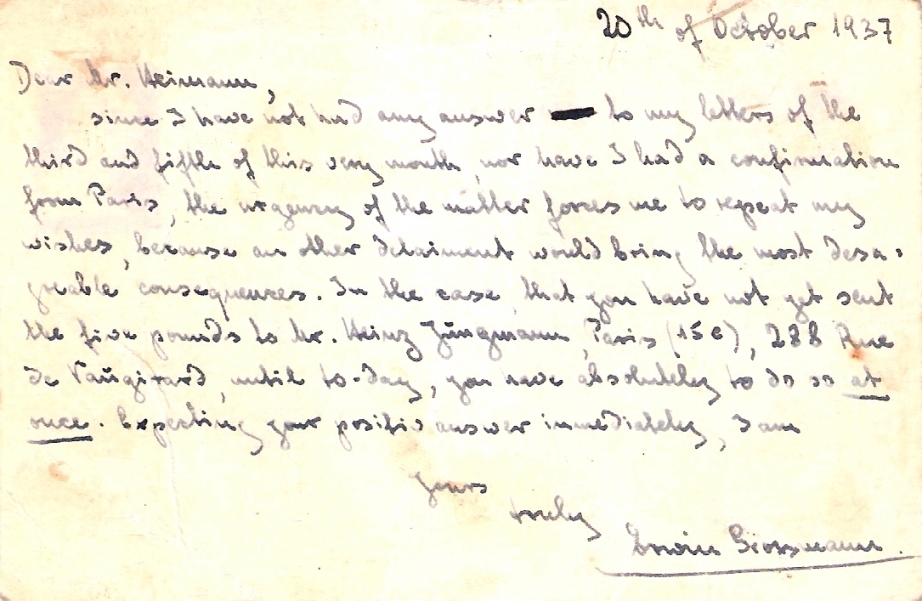 20th of October 1937
Dear Mr. Heimann,
since I have not had any answer to my letters of the
third and fifth of this very month, nor have I had a confirmation
from Paris, the urgency of the matter forces me to repeat my
wishes, because an other delaiment would bring the most desa-
greable consequences. In the case, that you have not yet sent
the five pounds to Mr. Heinz Jüngmann, Paris (15e), 288 Rue
de Vaugirard, until to-day, you have absolutely to do so at
once. Expecting your positiv answer immediately, I am
yours
truly
Erwin Grossmann.